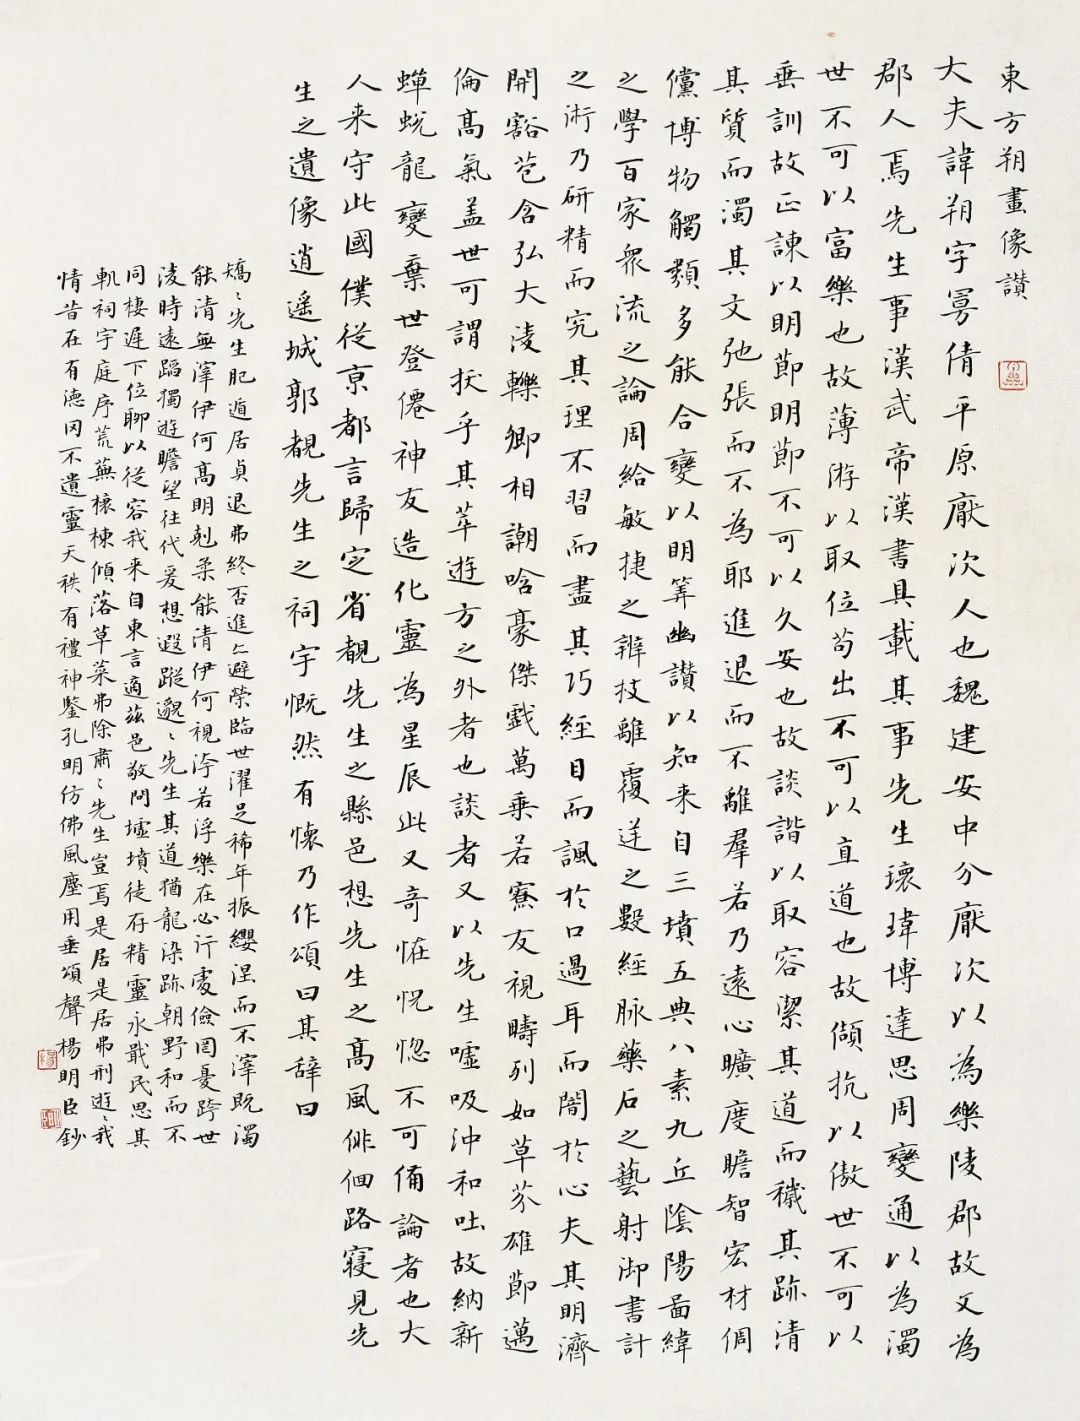 東方朔畫像讚
大夫諱朔字曼倩平原厭次人也魏建安中分厭次以為樂陵郡故又為
郡人焉先生事漢武帝漢書具載其事先生瓌瑋博達思周變通以為濁
世不可以富樂也故薄游以取位苟出不可以直道也故傾抗以傲世不可以
垂訓故正諫以明節明節不可以久安也故談諧以取容潔其道而穢其跡清
其質而濁其文弛張而不為耶進退而不離羣若乃遠心曠度瞻智宏材倜
儻博物觸類多能合變以明筭幽讚以知来自三墳五典八素九丘陰陽圖緯
之學百家衆流之論周給敏捷之辨枝離覆逆之數經脉藥石之藝射御書計
之術乃研精而究其理不習而盡其巧經目而諷於口過耳而闇於心夫其明濟
開豁苞含弘大淩轢卿相謿哈豪傑戲萬乗若寮友視疇列如草芥雄節邁
倫高氣盖世可謂拔乎其萃遊方之外者也談者又以先生噓吸沖和吐故納新
蟬蛻龍變棄世登僊神友造化靈為星辰此又奇怪怳惚不可備論者也大
人来守此國僕從京都言歸定省覩先生之縣邑想先生之高風俳佪路寢見先
生之遺像逍遥城郭覩先生之祠宇慨然有懷乃作頌曰其辞曰
矯〻先生肥遁居貞退弗終否進亦避榮臨世濯足稀年振纓涅而不滓既濁
能清無滓伊何高明剋柔能清伊何視汙若浮樂在必行處儉罔憂跨世
淩時遠蹈獨遊瞻望往代爰想遐蹤邈〻先生其道猶龍染跡朝野和而不
同棲遲下位聊以從容我来自東言適茲邑敬問墟墳徒存精靈永戢民思其
軌祠宇庭序荒蕪榱棟傾落草萊弗除肅〻先生豈焉是居是居弗刑遊〻我
情昔在有德罔不遺靈天秩有禮神鑒孔明仿佛風塵用垂頌聲 楊明臣鈔